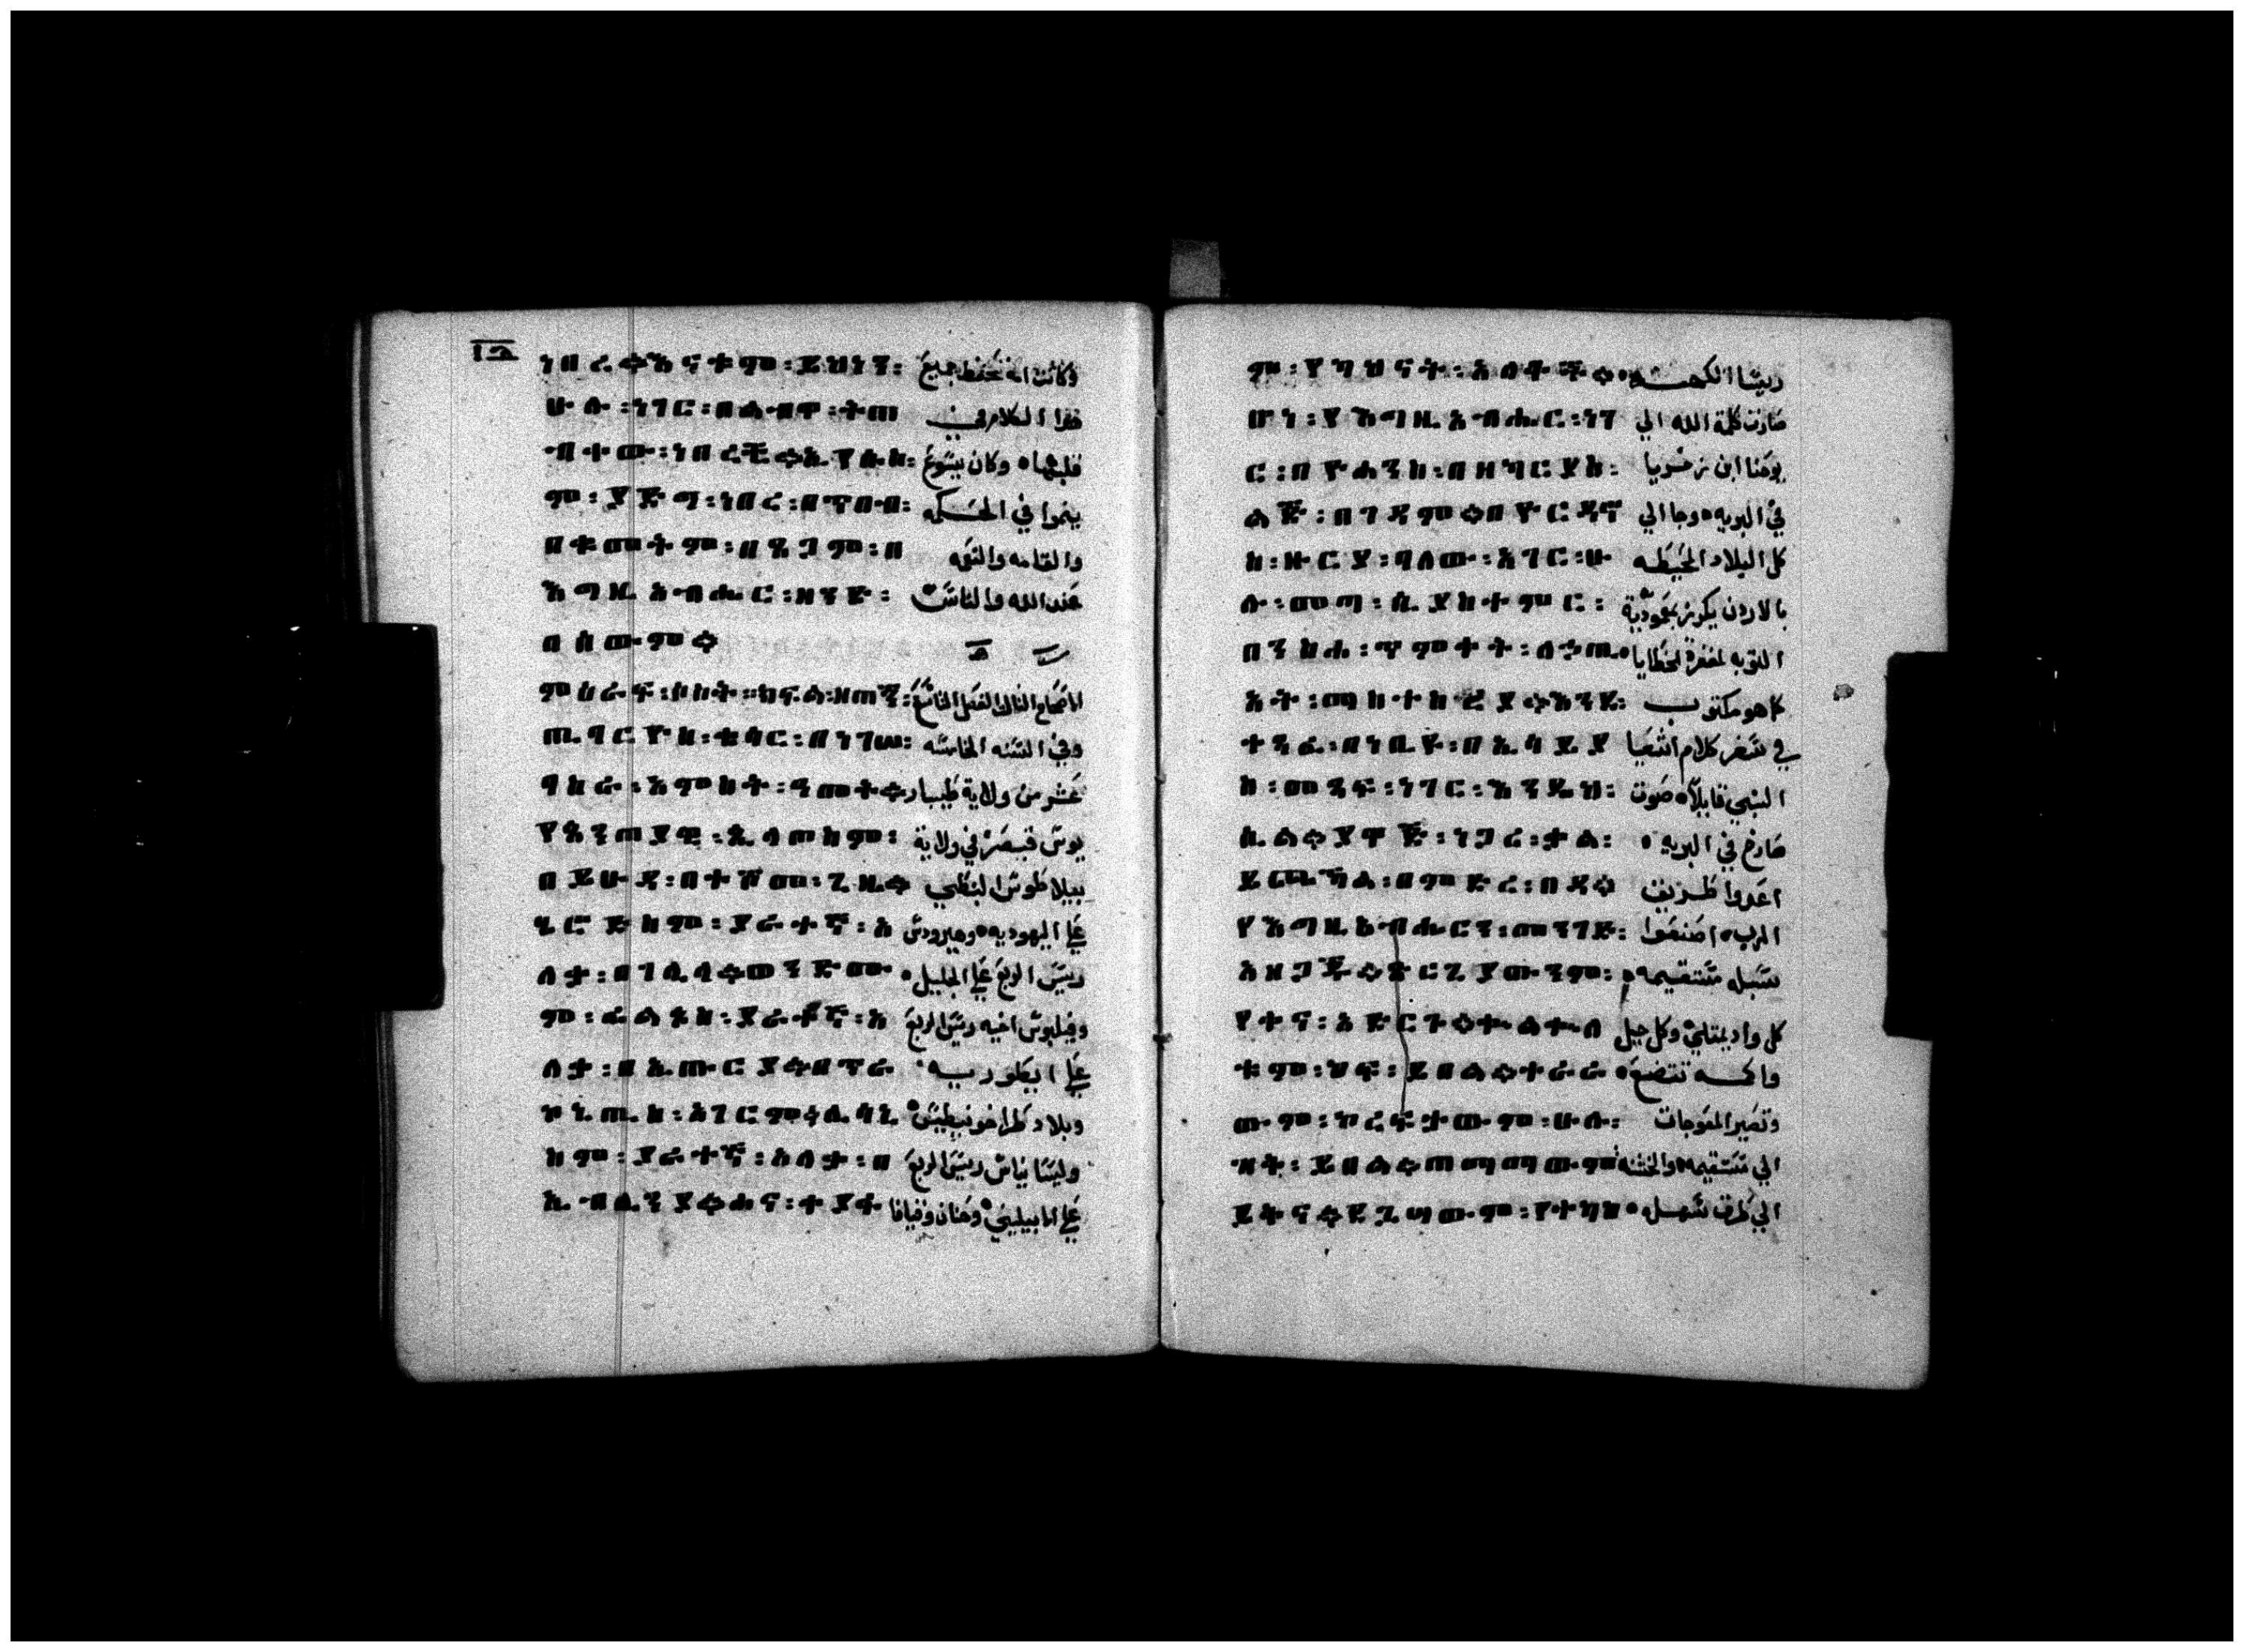 ነበረ። እናተም ፡ ይህነን ፡ وكانت امه تحفظ جميع
ሁሉ ፡ ነገር ፡ በልብዋ ፡ ትጠ هذا الكلام في
ብቀው ፡ ነበረች። ኢየሱስ ፡ قلبها ° وكان يسوع
ም ፡ ያድግ ፡ ነበረ ፡ በጥበብ ፡ ينموا في الحكمه
በቁመትም ፡ በጸጋም ፡ በ والقامه والنعمه
እግዚአብሔር ፡ ዘንድ ፡ عند الله والناس
በሰውም።
ምዕራፍ ፡ ክፍል ፡ ዘጠኝ ፡ الاصحاح الثالث الفصل التاسع
ጢባርዮስ ፡ ቄሳር ፡ በነገሠ ፡ وفي السنه الخامسه
ባስራ ፡ አምስት ፡ ዓመት። عشر من ولاية طيبار
የጰንጠያዊ ፡ ጲላጦስም ፡ يوس قيصر في ولاية
በይሁዳ ፡ በተሾመ ፡ ጊዜ። بيلاطوس البنطي
ሄሮድስም ፡ ያራተኛ ፡ አ علي اليهوديه ° وهيرودس
ለቃ ፡ በገሊላ። ወንድሙ رييس الربع علي الجليل °
ም ፡ ፊልጶስ ፡ ያራተኛ ፡ አ وفيلبوس اخيه رييس الربع
ለቃ ፡ በኢጡርያ። በጥራ علي ايطوريه °
ኮኒጢስ ፡ አገርም። ሊሳኒ وبلاد طراخونيطيس °
ስም ፡ ያራተኛ ፡ አለቃ ፡ በ وليسانياس رييس الربع
ኢብሊንያ። ሐና ፡ ቀያፋ علي الابيلينى ° وحنان وقيافا
ም ፡ የካህናት ፡ አለቆች። رييسا الكهنه °
ሆነ ፡ የእግዚአብሔር ፡ ነገ صارت كلمة الله الي
ር ፡ በዮሐንስ ፡ በዘካርያስ ፡ يوحنا ابن زخريا
ልጅ ፡ በገዳም። በዮርዳኖ في البريه ° وجا الي
ስ ፡ ዙርያ ፡ ባለው ፡ አገር ፡ ሁ كل البلاد المحيطه
ሉ ፡ መጣ ፡ ሲያስተምር ፡ بالاردن يكرز بمعمودية
በንስሐ ፡ ጥምቀት ፡ ለኃጢ التوبه لمغفرة الخطايا °
አት ፡ ማስተስረያ። እንደ ፡ كما هو مكتوب
ተጻፈ ፡ በነቢዩ ፡ በኢሳይያ في سفر كلام اشعيا
ስ ፡ መጻፍ ፡ ነገር ፡ እንዲህ ፡ النبي قايلا ° صوت
ሲል። ያዋጅ ፡ ነጋሪ ፡ ቃል ፡ صارخ في البريه °
ይጮኻል ፡ በምድረ ፡ በዳ። اعدوا طريق
የእግዚአብሔርን ፡ መንገድ ፡ الرب ° اصنعوا
አዘጋጁ። ጥርጊያውንም ፡ سبله مستقيمه °
የቀና ፡ አድርጉ። ቁልቁለ كل واد يمتلي ° وكل جبل
ቱም ፡ ይበል። ተራራ واكمه تتضع °
ውም ፡ ኮረፍታውም ፡ ሁሉ ፡ وتصير المعوجات
ዝቅ ፡ ይበል። ጠማማውም الي مستقيمه ° والخشنه
ይቅና። الي طرق سهله °